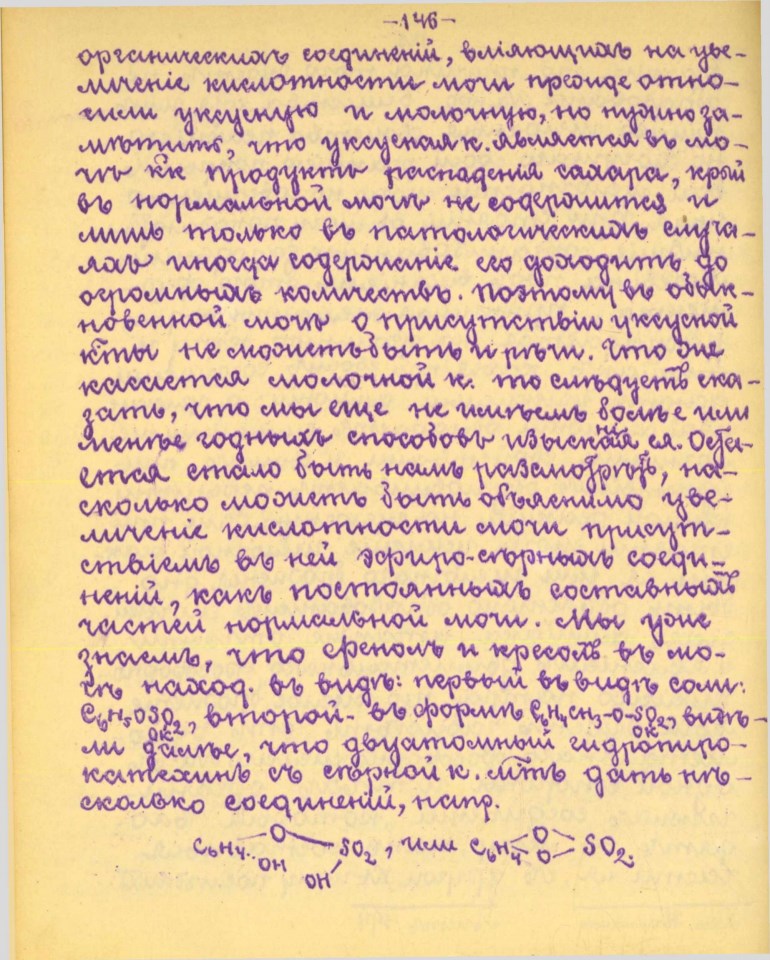 -146-
органическихъ соединеній, вліяющихъ на уве-
личеніе кислотности мочи прежде отно-
сили уксусную и молочную, но нужно за-
мѣтить, что уксусная к. является въ мо-
чѣ к̃к продуктъ распаденія сахара, к̃рый
въ нормальной мочѣ не содержится и
лишь только въ патологическихъ случа-
яхъ иногда содержаніе его доходитъ до
огромныхъ количествъ. Поэтому въ обык-
новенной мочѣ о присутствіи уксусной
к̃ты не можетъ быть и рѣчи. Что же
касается молочной к. то слѣдуетъ ска-
зать, что мы еще не имѣемъ болѣе или
менѣе годныхъ способовъ изысканія ея. Оста-
ется стало быть намъ разсмотрѣть, на-
сколько можетъ быть объяснимо уве-
личеніе кислотности мочи присут-
ствіемъ въ ней эфиро-сѣрныхъ соеди-
неній, какъ постоянныхъ составныхъ
частей нормальной мочи. Мы уже
знаемъ, что фенолъ и крезолъ въ мо-
чѣ наход. въ видѣ: первый въ видѣ соли:
C₆H₅OSO₂, второй - въ формѣ C₆H₄CH₃-O-SO₂, видѣ-
OK OK
ли далѣе, что двуатомный гидропиро-
катехинъ съ сѣрной к. м̃тъ дать нѣ-
сколько соединеній, напр.
C₆H₄ O OH SO₂ OH, или C₆H₄ O O SO₂.